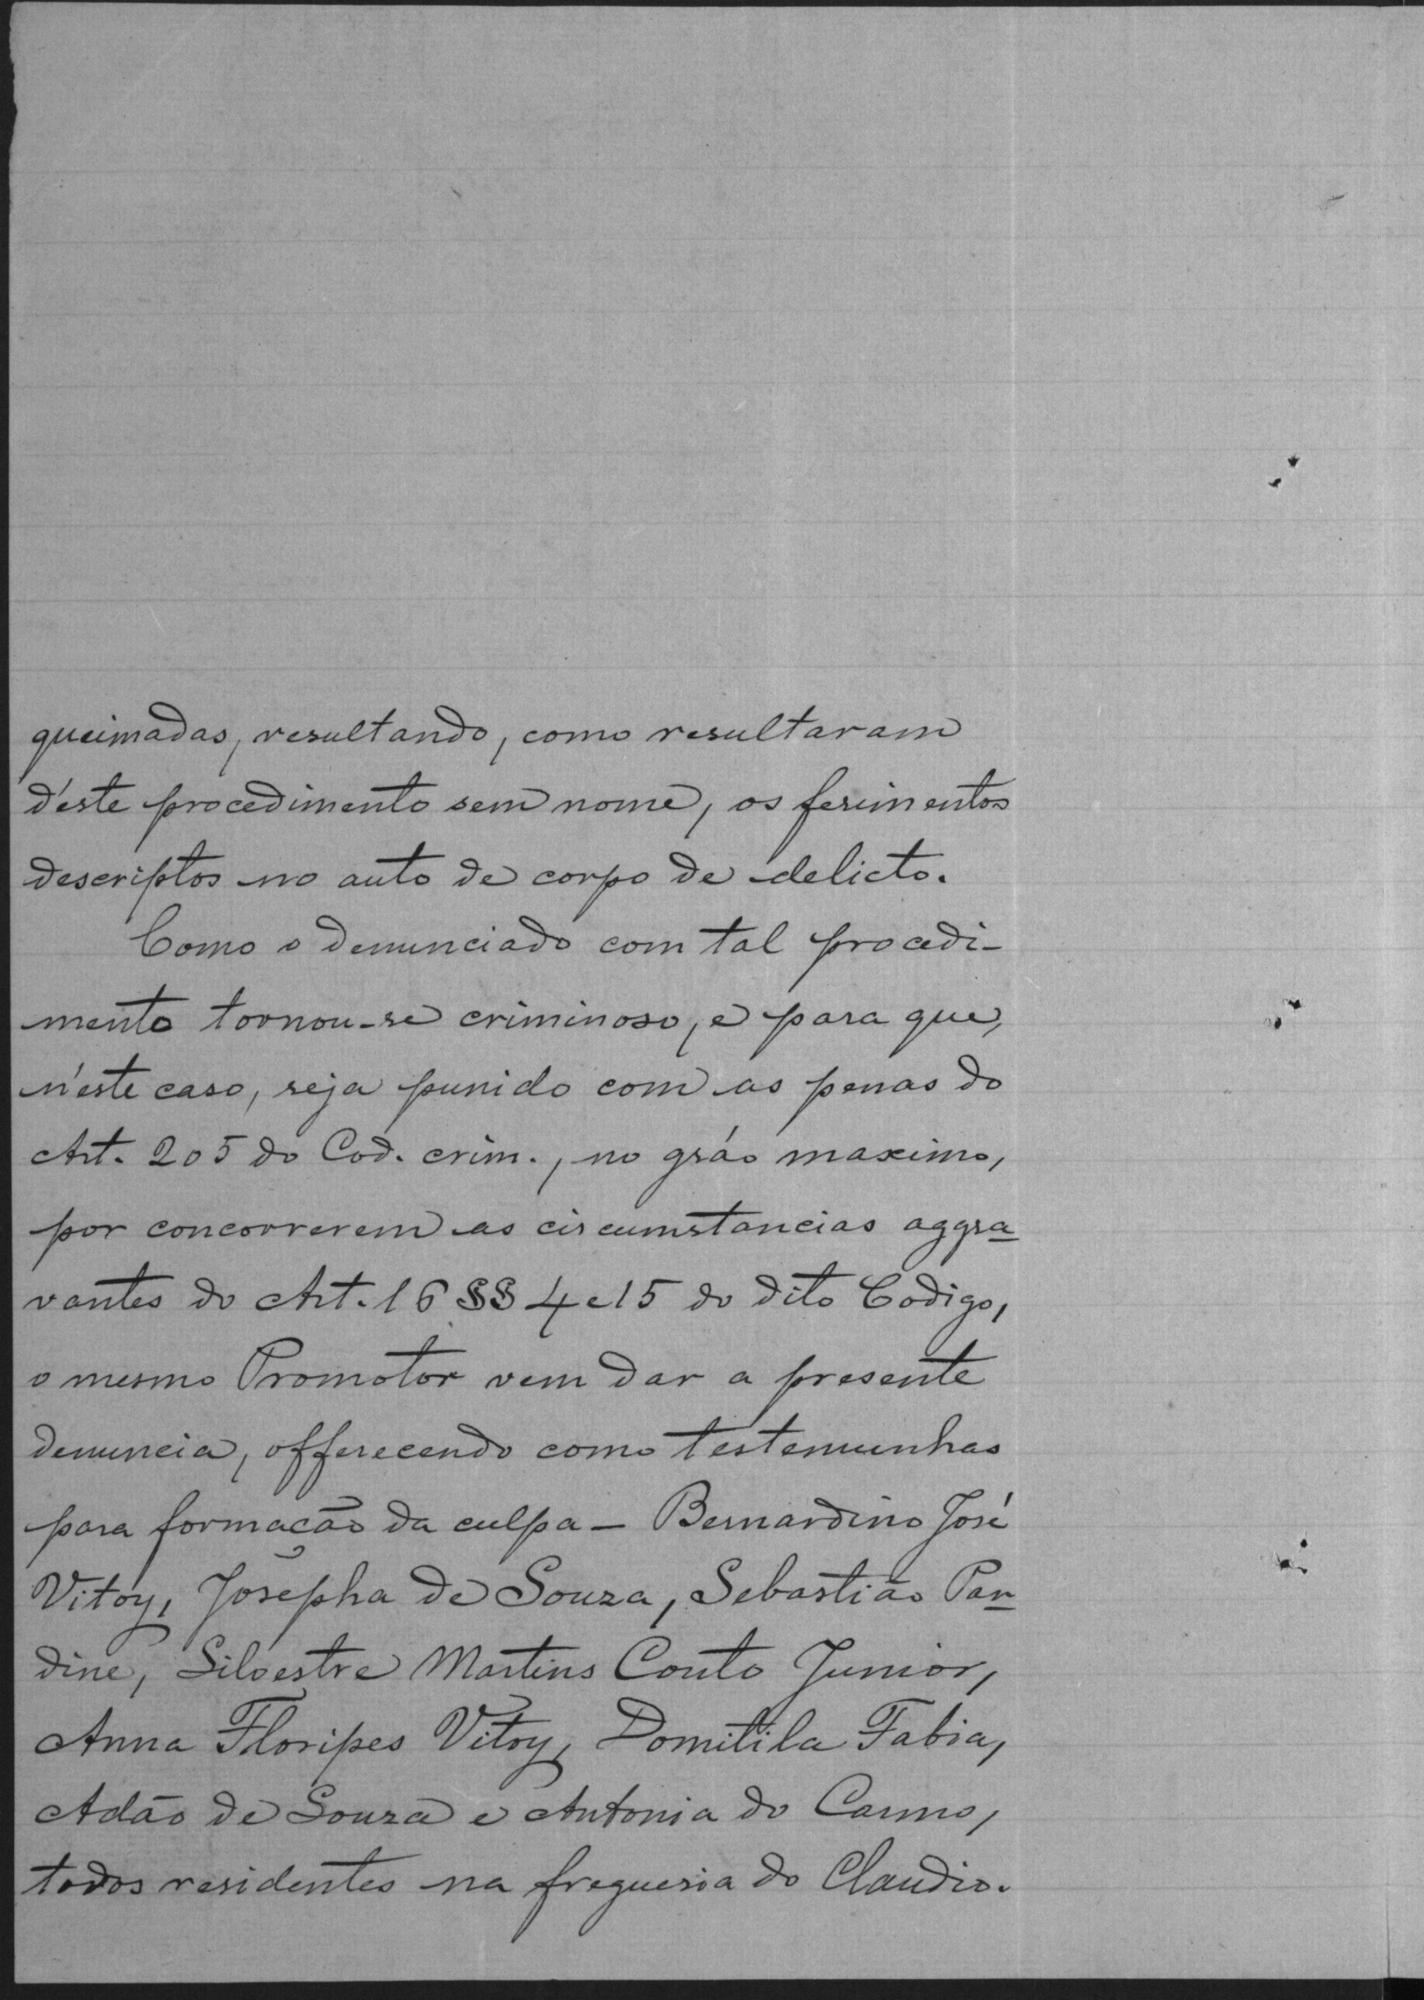 queimadas, resultando, como resultaram
d'éste procedimento sem nome, os ferimentos
descriptos no auto de corpo de delicto.
Como o denunciado com tal procedi-
mento tornou-se criminoso, e para que,
n'éste caso, seja punido com as penas do
Art. 205 do Cod. crim., no gráo maximo,
por concorrerem as circumstancias aggra-
vantes do Art. 16 §§ 4 e 15 do dito Codigo,
o mesmo Promotor vem dar a presente
denuncia, offerecendo como testemunhas
para formação da culpa — Bernardino José
Vitoy, Josepha de Souza, Sebastião Par-
dine, Silvestre Martins Couto Junior,
Anna Floripes Vitoy, Domitila Fabia,
Adão de Souza e Antonia do Carmo,
todos residentes na freguesia do Claudio.